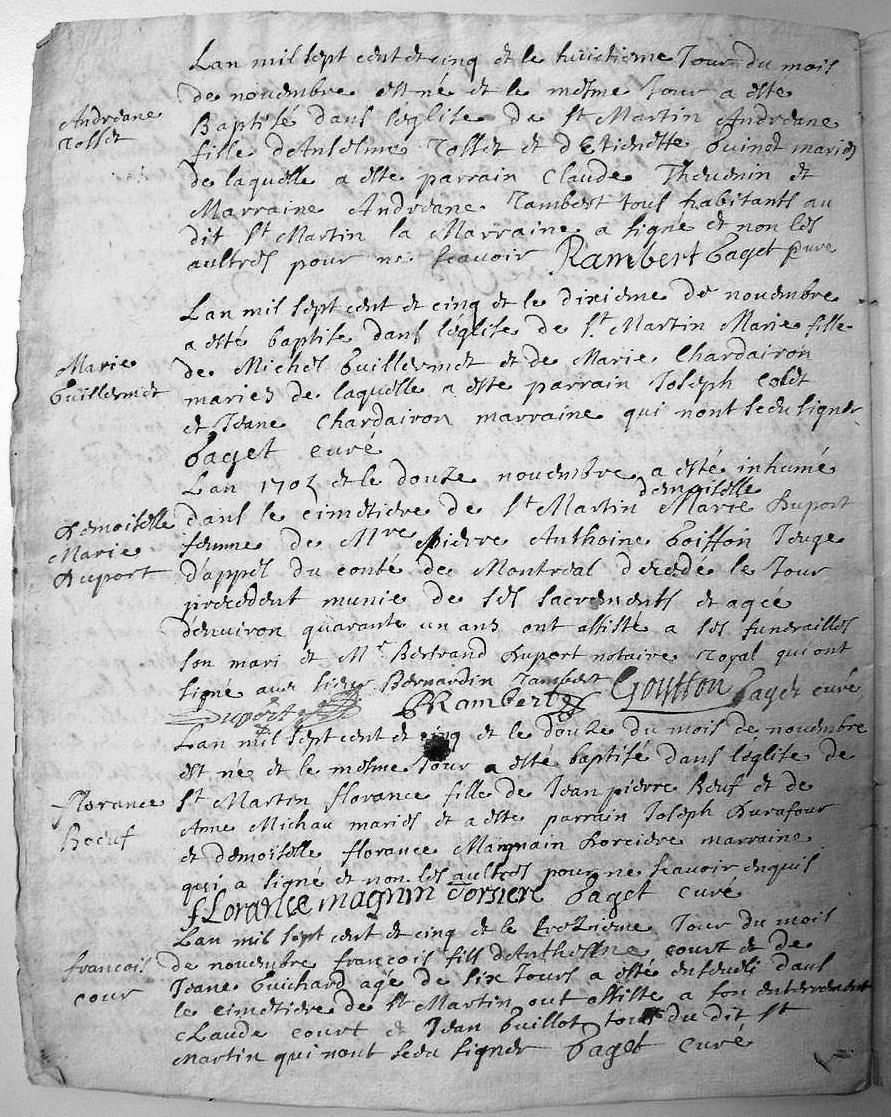 Lan mil sept cent et cinq et le huictieme Jour du mois
de nouembre est né et le mesme Jour a este
Andreane
Rosset
Baptisé dans léglise de St Martin Andreane
fille dAnselme Rosset et dEtienette Guinet mariés
de laquelle a este parrain Claude Theuenin et
Marraine Andreane Rambert tous habitants au
dit St Martin la Marraine a signé et non les
aultres pour ne scauoir Rambert Gaget curé
Lan mil sept cent et cinq et le dixieme de nouembre
a esté baptisé dans léglise de St Martin Marie fille
Marie
Guillermet
de Michel Guillermet et de Marie Chardairon
mariez de laquelle a este parrain Joseph Colet
et Jeane Chardairon marraine qui nont sceu signer
Gaget curé
Lan 1705 et le douze nouembre a esté inhumé
Demoiselle
Marie
Duport
dans le cimetiere de St Martin demoiselle Marie Duport
femme de Mre pierre Anthoine Goiffon Juge
d'appel du conté de Montreal decede le Jour
precedent munie de ses sacrements et agée
denuiron quarante un ans ont assisté a ses funerailles
son mari et Mr. Bertrand Duport notaire Royal qui ont
signé auec sieur Bernardin Rambert Goyffon Gaget curé
Duport Rambert
Lan mil sept cent et cinq et le douze du mois de nouembre
est né et le mesme Jour a esté baptisé dans léglise de
florance
Boeuf
St Martin florance fille de Jean pierre Beuf et de
Anne Michau mariés et a este parrain Joseph Durafour
et demoiselle florance Magnin Dorciere marraine
qui a signé et non les aultres pour ne scauoir enquis
florance magnin Dorsiere Gaget curé
Lan mil sept cent et cinq et le trezieme Jour du mois
francois
cour
de nouembre francois fils dAnthelme court et de
Jeane Guichard agé de six Jours a esté enseueli dans
le cimetiere de St Martin ont assisté a son enterrement
Claude court et Jean Guillot tous du dit St
Martin qui nont sceu signer Gaget curé